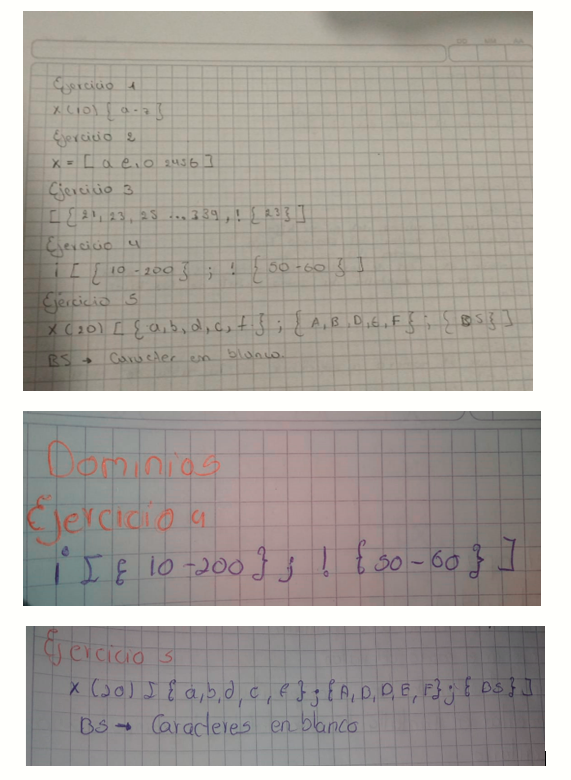 Ejercicio 1
X(10){a-z}
Ejercicio 2
x=[a e,o 2456]
Ejercicio 3
[{21,23,25 ...339,!{23}]
Ejercicio 4
i[{10-200};!{50-60}]
Ejercicio 5
X(20)[{a,b,d,c,f};{A,B,D,E,F};{BS}]
BS → Caracter en blanco.
Dominios
Ejercicio 4
i[{10-200};!{50-60}]
Ejercicio 5
X(20)[{a,b,d,c,f};{A,D,D,E,F};{DS}]
BS → Caracteres en blanco